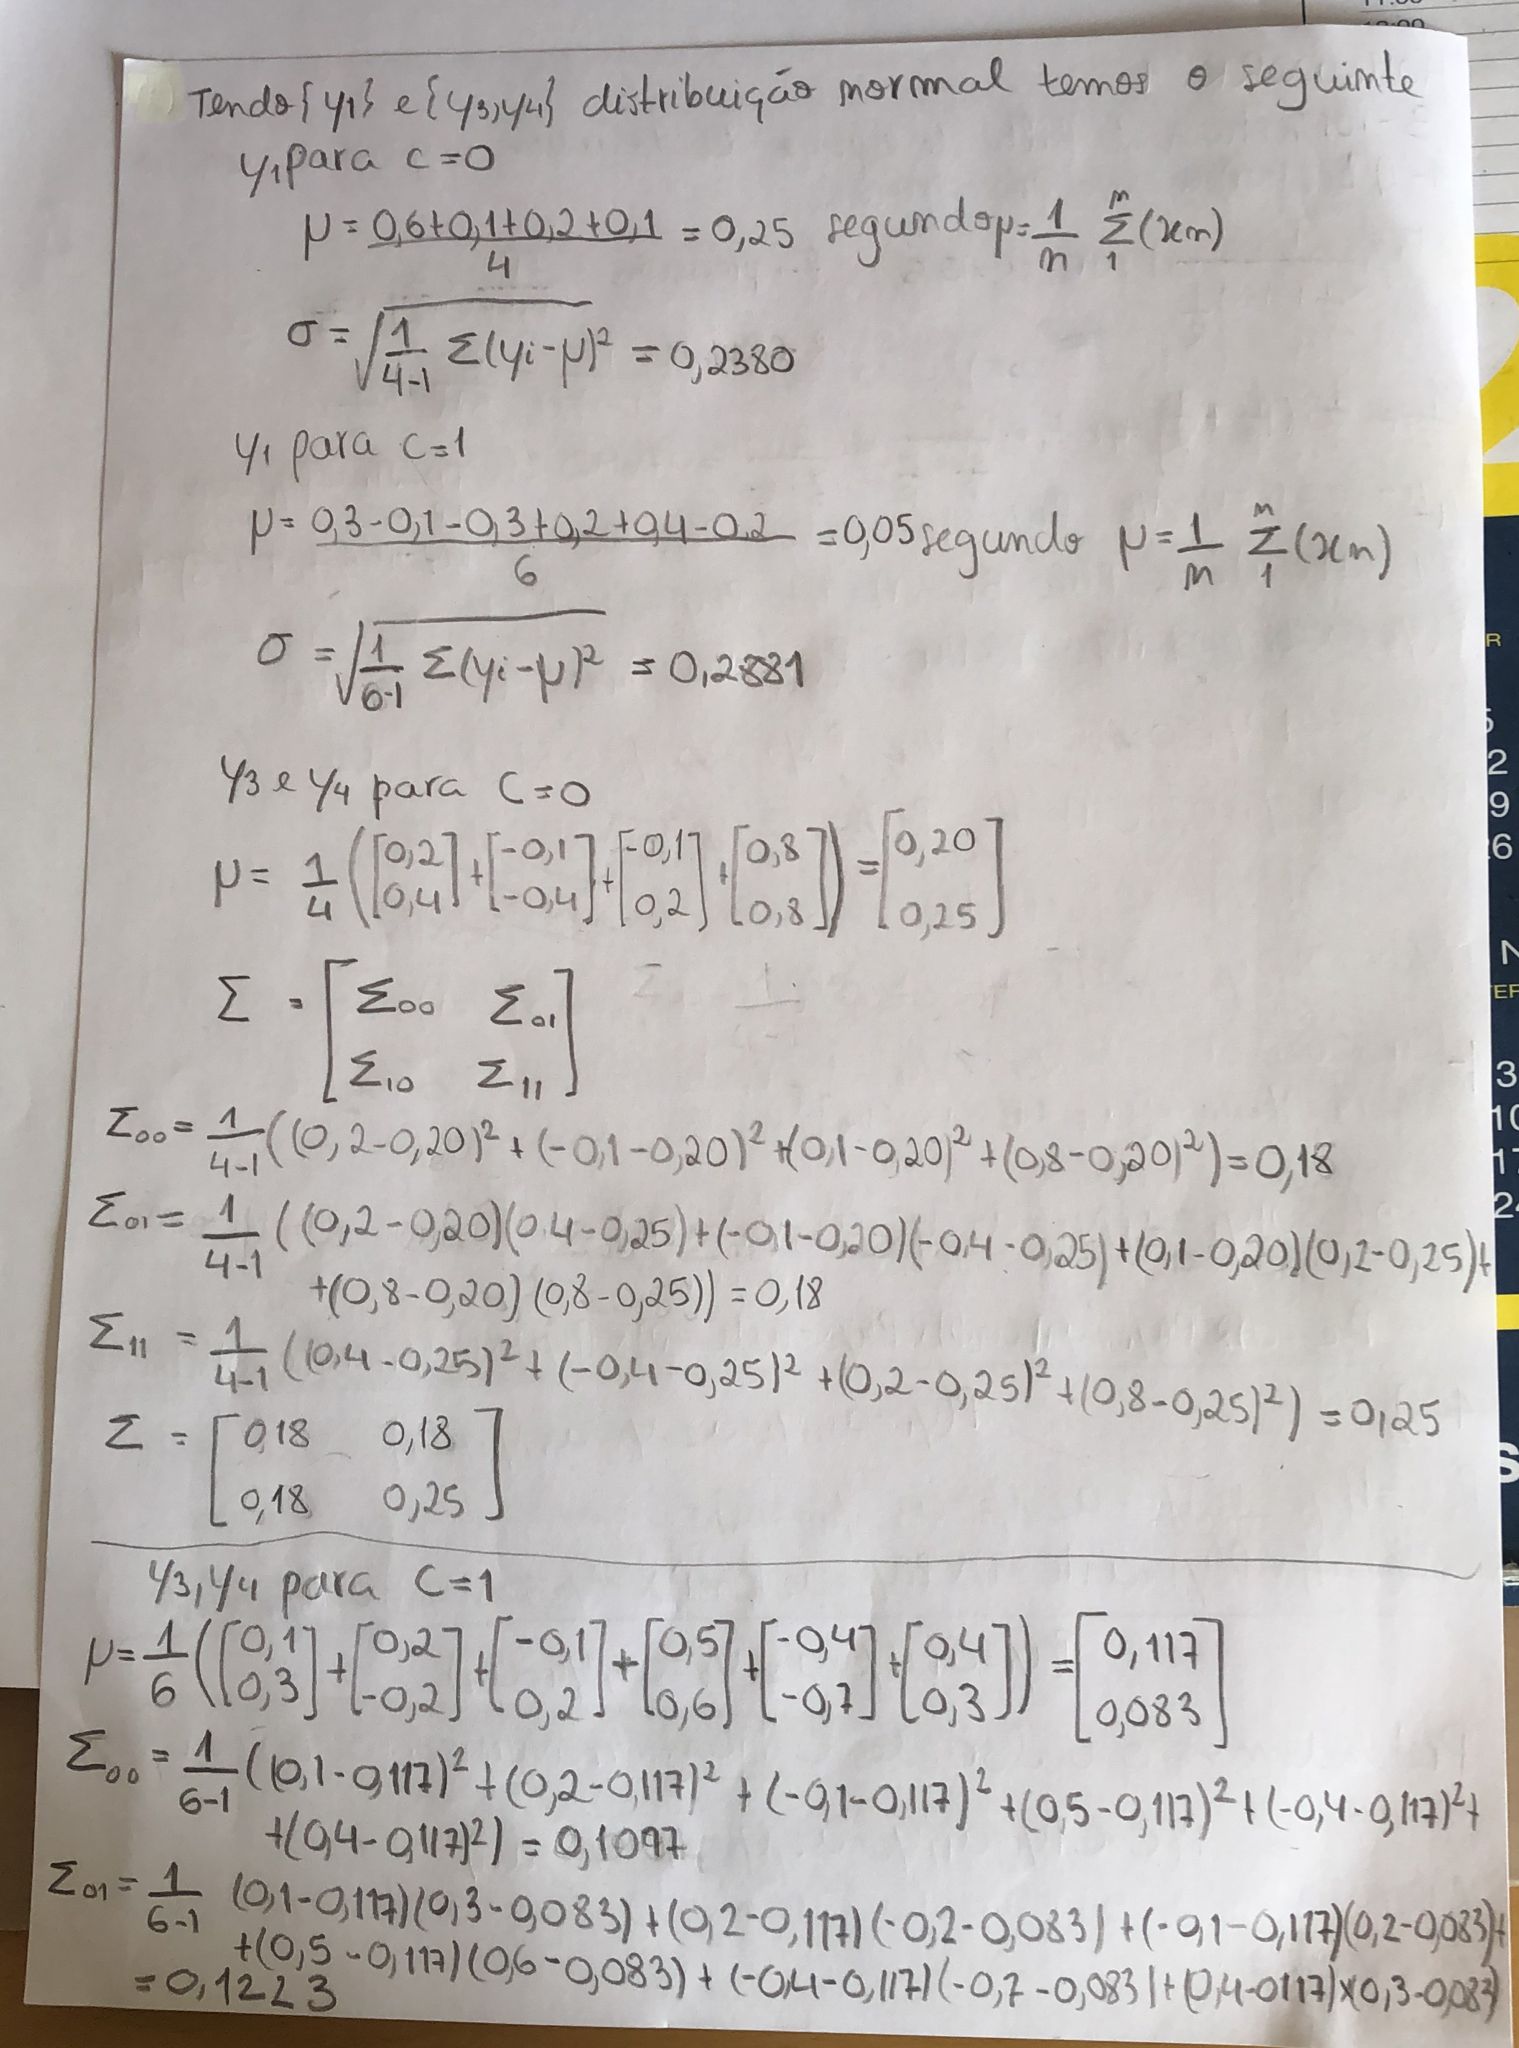 11:00
12:00
Tendo {y1} e {y3,y4} distribuição normal temos o seguinte
y1 para c=0
μ = (0,6+0,1+0,2+0,1)/4 = 0,25 segundo μ = 1/n Σ₁ⁿ (xn)
σ = √(1/(4-1) Σ(yi-μ)²) = 0,2380
y1 para c=1
μ = (0,3-0,1-0,3+0,2+0,4-0,2)/6 = 0,05 segundo μ = 1/n Σ₁ⁿ (xn)
σ = √(1/(6-1) Σ(yi-μ)²) = 0,2881
y3 e y4 para C=0
μ = 1/4 ([0,2 0,4] + [-0,1 -0,4] + [-0,1 0,2] + [0,8 0,8]) = [0,20 0,25]
Σ = [Σ00 Σ01
Σ10 Σ11]
Σ00 = 1/(4-1) ((0,2-0,20)² + (-0,1-0,20)² + (0,1-0,20)² + (0,8-0,20)²) = 0,18
Σ01 = 1/(4-1) ((0,2-0,20)(0,4-0,25) + (-0,1-0,20)(-0,4-0,25) + (0,1-0,20)(0,2-0,25) +
+(0,8-0,20)(0,8-0,25)) = 0,18
Σ11 = 1/(4-1) ((0,4-0,25)² + (-0,4-0,25)² + (0,2-0,25)² + (0,8-0,25)²) = 0,25
Σ = [0,18 0,18
0,18 0,25]
y3, y4 para C=1
μ = 1/6 ([0,1 0,3] + [0,2 -0,2] + [-0,1 0,2] + [0,5 0,6] + [-0,4 -0,7] + [0,4 0,3]) = [0,117 0,083]
Σ00 = 1/(6-1) ((0,1-0,117)² + (0,2-0,117)² + (-0,1-0,117)² + (0,5-0,117)² + (-0,4-0,117)² +
+(0,4-0,117)²) = 0,1097
Σ01 = 1/(6-1) (0,1-0,117)(0,3-0,083) + (0,2-0,117)(-0,2-0,083) + (-0,1-0,117)(0,2-0,083) +
+(0,5-0,117)(0,6-0,083) + (-0,4-0,117)(-0,7-0,083) + (0,4-0117)×(0,3-0,083)
= 0,1223